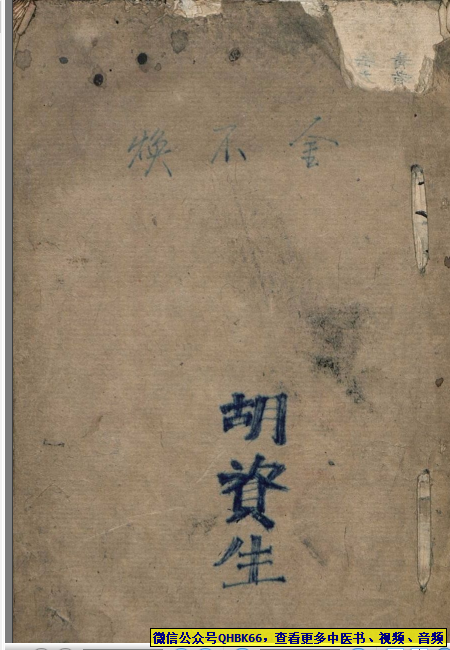 金不煥
胡資生
微信公众号QHBK66，查看更多中医书、视频、音频